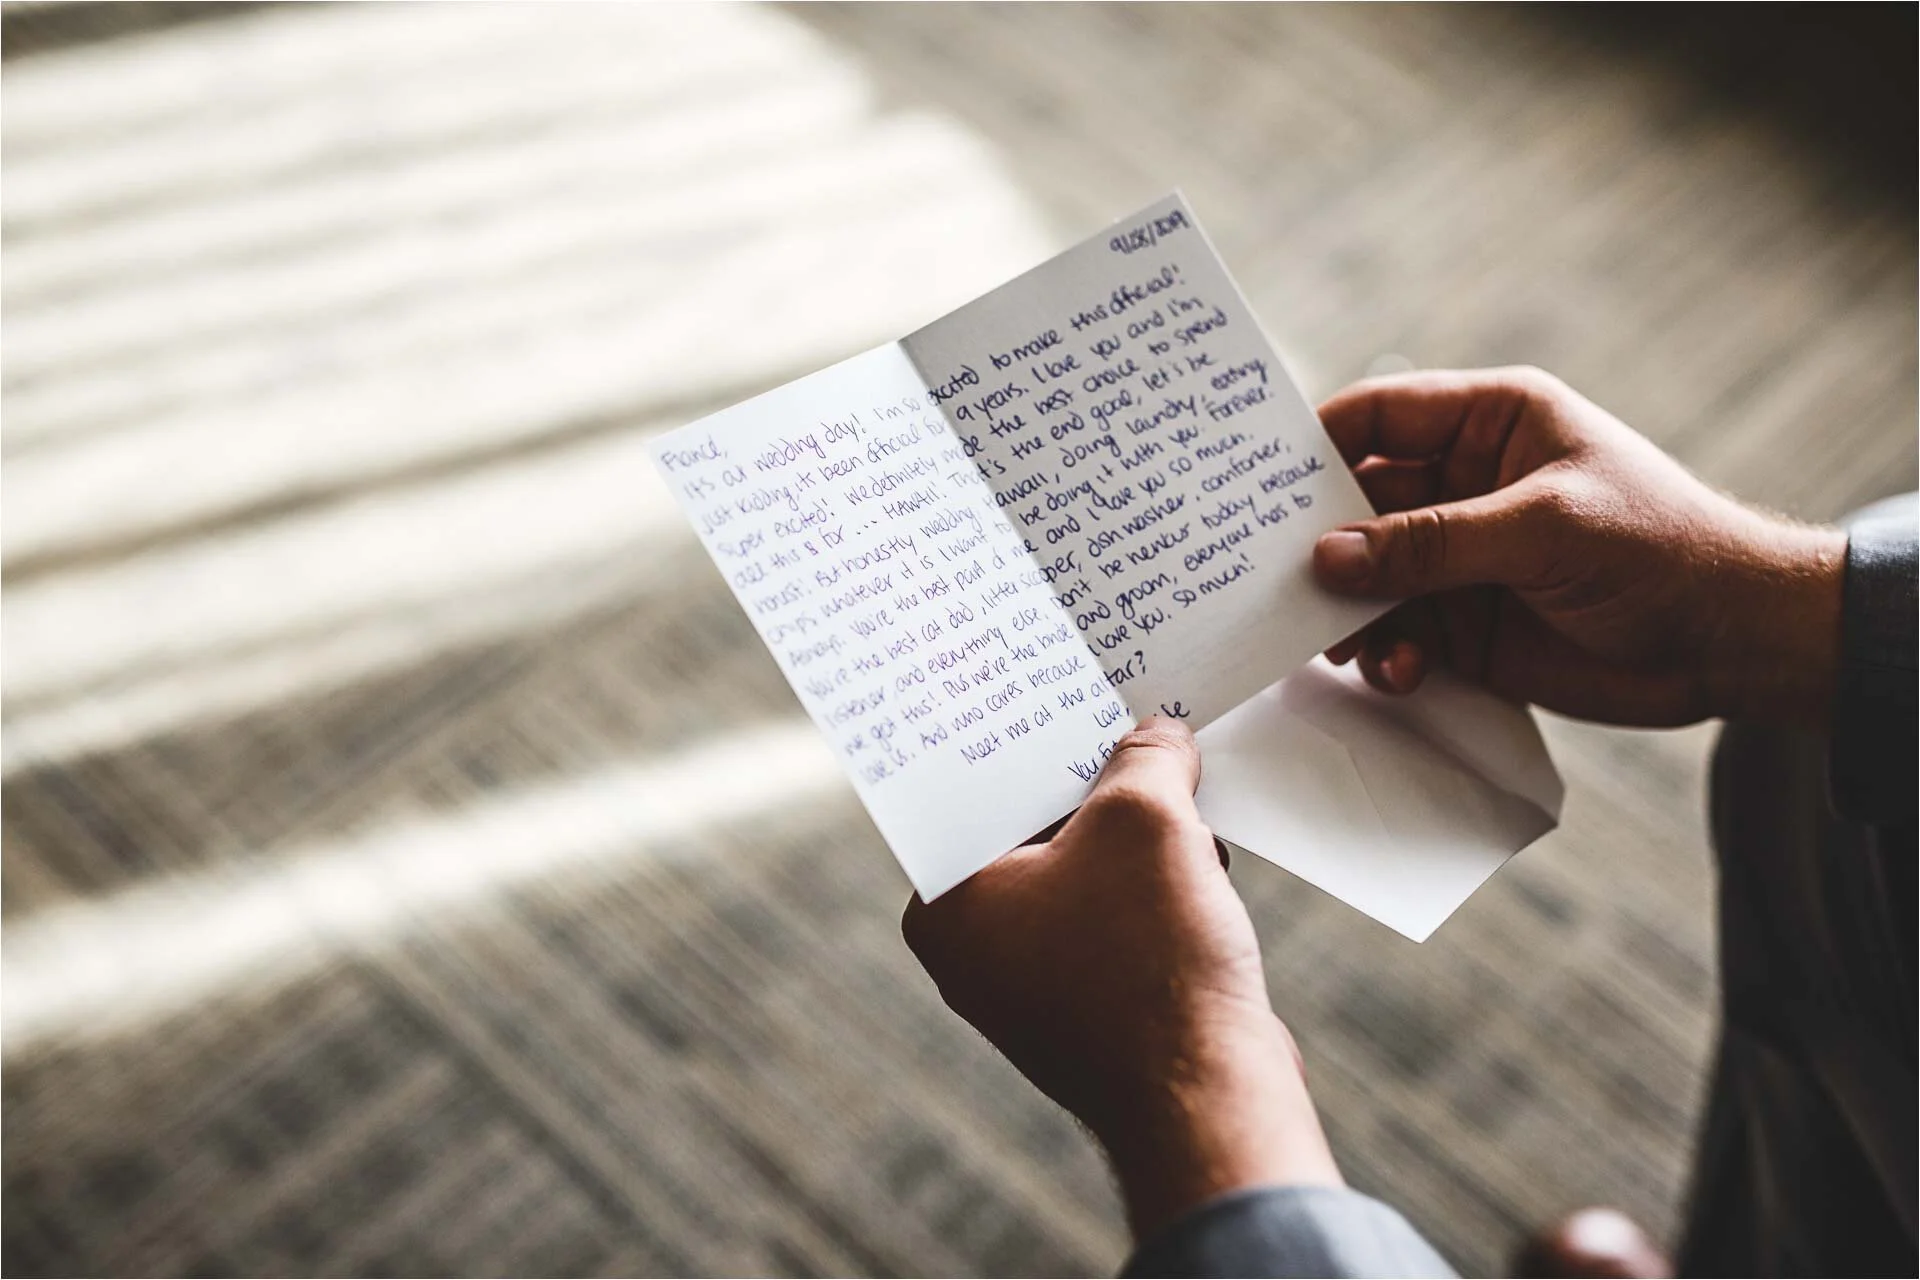 9/28/2019
Fiancé,
It's our wedding day! I'm so excited to make this official!
Just kidding, it's been official for 9 years. I love you and I'm
super excited! We definitely made the best choice to spend
all this $ for ... HAWAII! That's the end goal, let's be
honest! But honestly wedding, Hawaii, doing laundry, eating
chips whatever it is I want to be doing it with you. Forever.
Always. You're the best part of me and I love you so much.
You're the best cat dad, litter scooper, dish washer, comforter,
listener and everything else. Don't be nervous today because
we got this! Plus we're the bride and groom, everyone has to
love us. And who cares because I love you. So much!
Meet me at the altar?
Love,